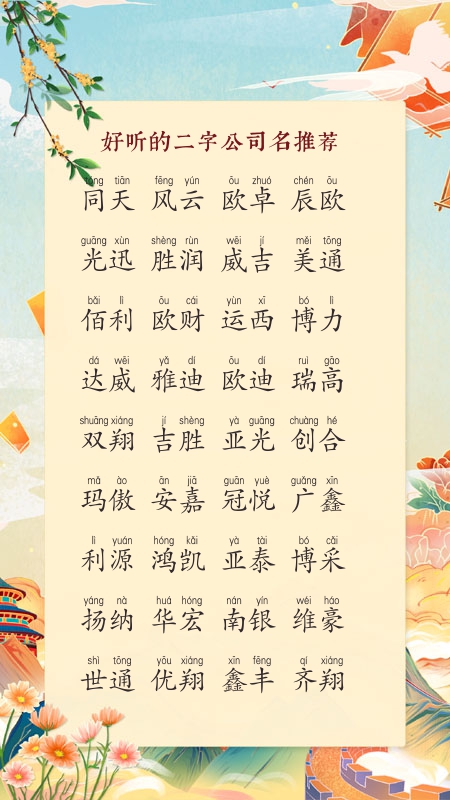 好听的二字公司名推荐
tóng tiān fēng yún ōu zhuó chén ōu
同天 风云 欧卓 辰欧
guāng xùn shèng rùn wēi jí měi tōng
光迅 胜润 威吉 美通
bǎi lì ōu cái yùn xī bó lì
佰利 欧财 运西 博力
dá wēi yǎ dí ōu dí ruì gāo
达威 雅迪 欧迪 瑞高
shuāng xiáng jí shèng yà guāng chuàng hé
双翔 吉胜 亚光 创合
mǎ ào ān jiā guān yuè guǎng xīn
玛傲 安嘉 冠悦 广鑫
lì yuán hóng kǎi yà tài bó cǎi
利源 鸿凯 亚泰 博采
yáng nà huá hóng nán yín wéi háo
扬纳 华宏 南银 维豪
shì tōng yōu xiáng xīn fēng qí xiáng
世通 优翔 鑫丰 齐翔